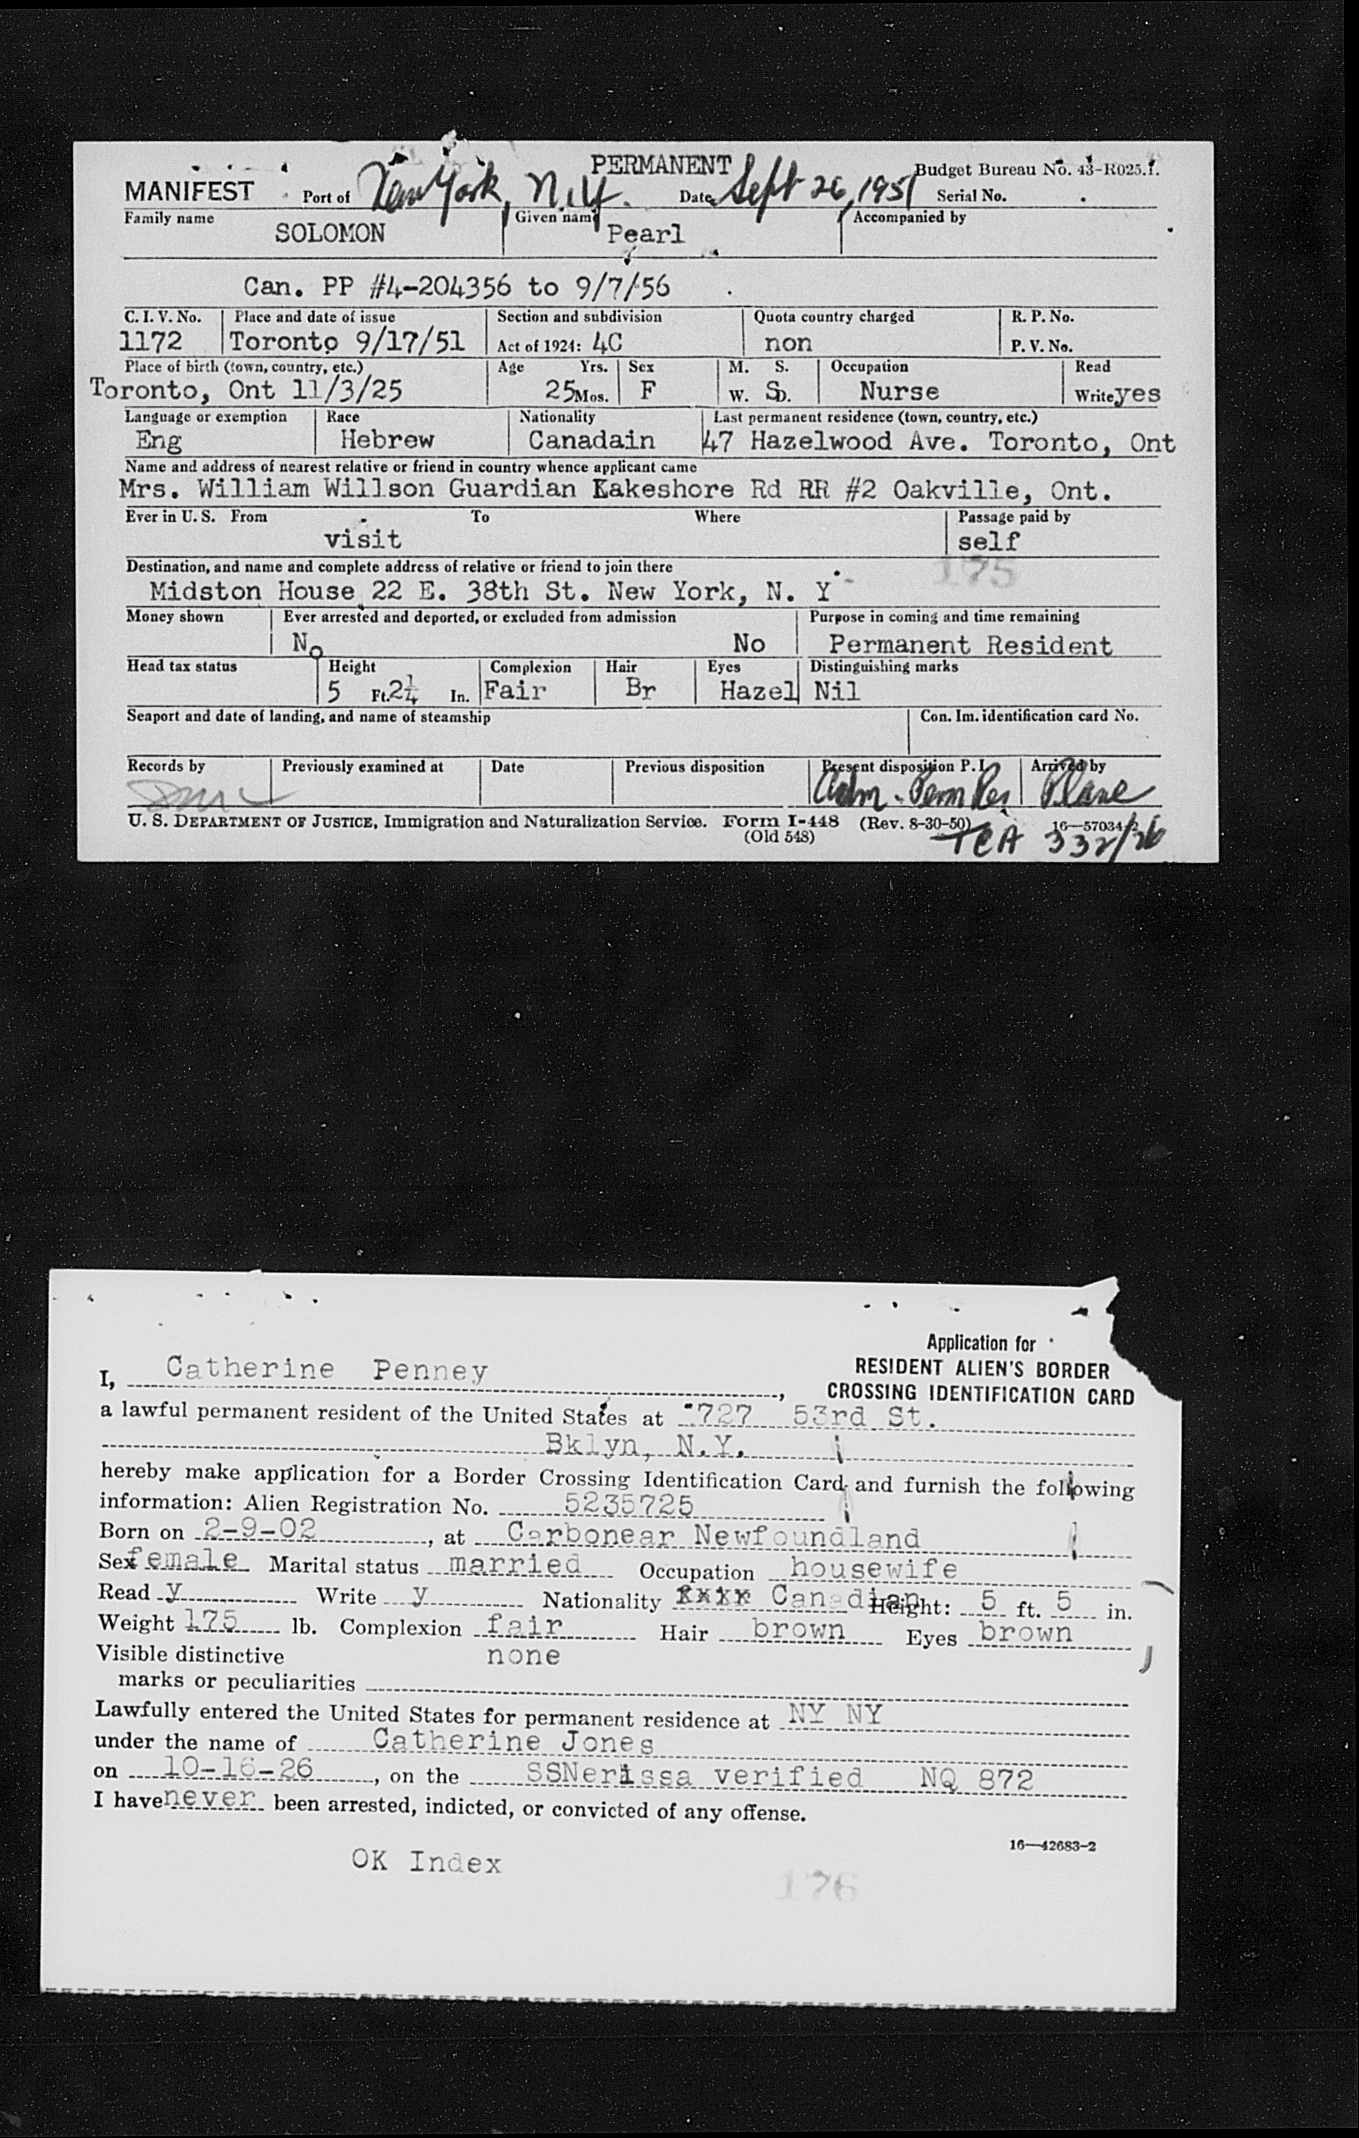 PERMANENT
MANIFEST Port of New York, N.Y. Date Sept 26, 1951 Budget Bureau No. 43-R025.1.
Serial No.
Family name Given name Accompanied by
SOLOMON Pearl
Can. PP #4-204356 to 9/7/56
C. I. V. No. Place and date of issue Section and subdivision Quota country charged R. P. No.
1172 Toronto 9/17/51 Act of 1924: 4C non P. V. No.
Place of birth (town, country, etc.) Age Yrs. Sex M. S. Occupation Read
Toronto, Ont 11/3/25 25 Mos. F W. S D. Nurse Write yes
Language or exemption Race Nationality Last permanent residence (town, country, etc.)
Eng Hebrew Canadain 47 Hazelwood Ave. Toronto, Ont
Name and address of nearest relative or friend in country whence applicant came
Mrs. William Willson Guardian Lakeshore Rd RR #2 Oakville, Ont.
Ever in U. S. From To Where Passage paid by
visit self
Destination, and name and complete address of relative or friend to join there
175
Midston House 22 E. 38th St. New York, N. Y
Money shown Ever arrested and deported, or excluded from admission Purpose in coming and time remaining
No No Permanent Resident
Head tax status Height Complexion Hair Eyes Distinguishing marks
5 Ft. 2¼ In. Fair Br Hazel Nil
Seaport and date of landing, and name of steamship Con. Im. identification card No.
Records by Previously examined at Date Previous disposition Present disposition P. I. Arrived by
Adm. Perm Res Plane
U. S. DEPARTMENT OF JUSTICE, Immigration and Naturalization Service. Form I-448 (Rev. 8-30-50) 16—57034-2
(Old 548)
TCA 332/26
Application for
RESIDENT ALIEN'S BORDER
CROSSING IDENTIFICATION CARD
I, Catherine Penney,
a lawful permanent resident of the United States at 727 53rd St.
Bklyn, N.Y.
hereby make application for a Border Crossing Identification Card and furnish the following
information: Alien Registration No. 5235725
Born on 2-9-02, at Carbonear Newfoundland
Sex female Marital status married Occupation housewife
Read y Write y Nationality xxxx Canadian Height: 5 ft. 5 in.
Weight 175 lb. Complexion fair Hair brown Eyes brown
Visible distinctive none
marks or peculiarities
Lawfully entered the United States for permanent residence at NY NY
under the name of Catherine Jones
on 10-16-26, on the SSNerissa verified NQ 872
I have never been arrested, indicted, or convicted of any offense.
16—42683-2
OK Index
176